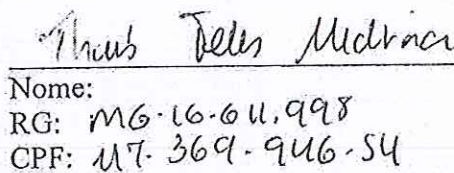 Thais Teles Medrina
Nome:
RG: MG-16.611.998
CPF: 117.369.946-54